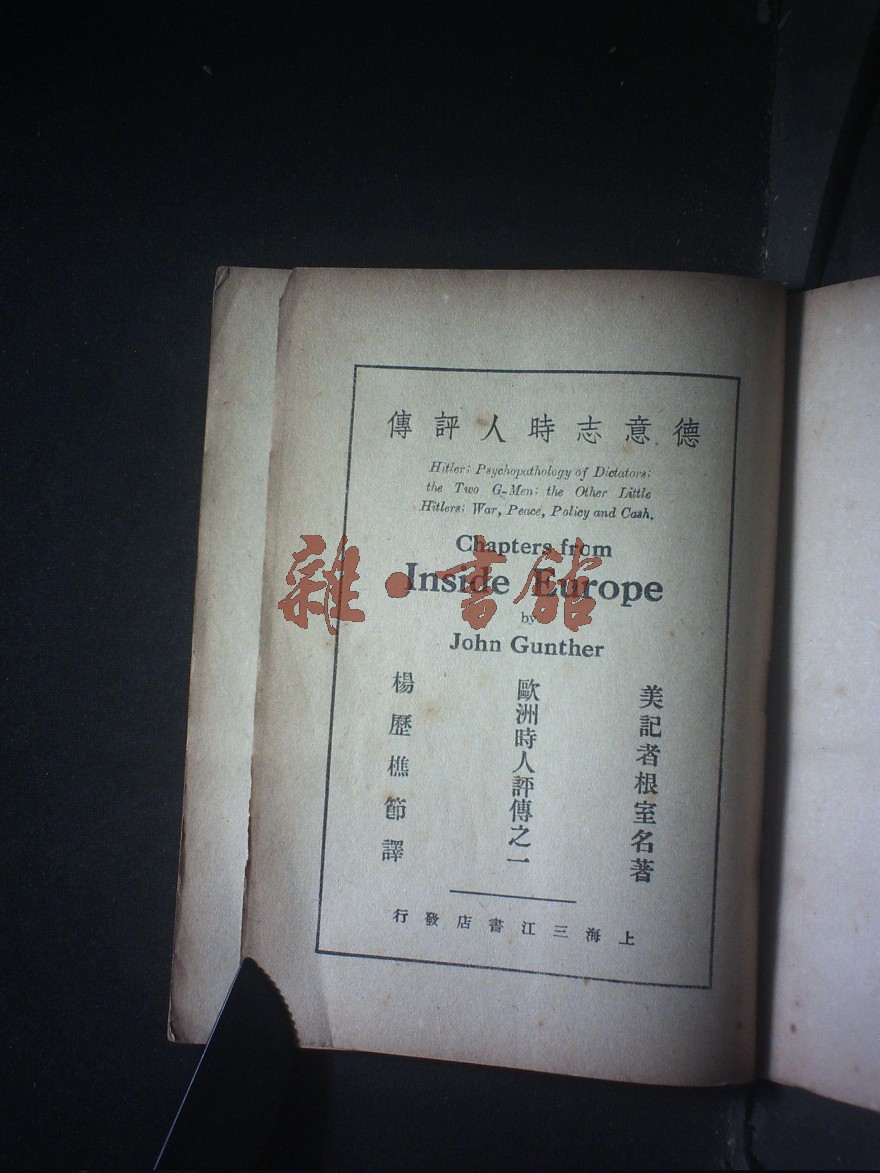 德意志時人評傳
Hitler; Psychopathology of Dictators;
the Two G-Men; the Other Little
Hitlers; War, Peace, Policy and Cash.
Chapters from
Inside Europe
by
John Gunther
美記者根室名著
歐洲時人評傳之一
楊歷樵節譯
上海三江書店發行
雜·書館